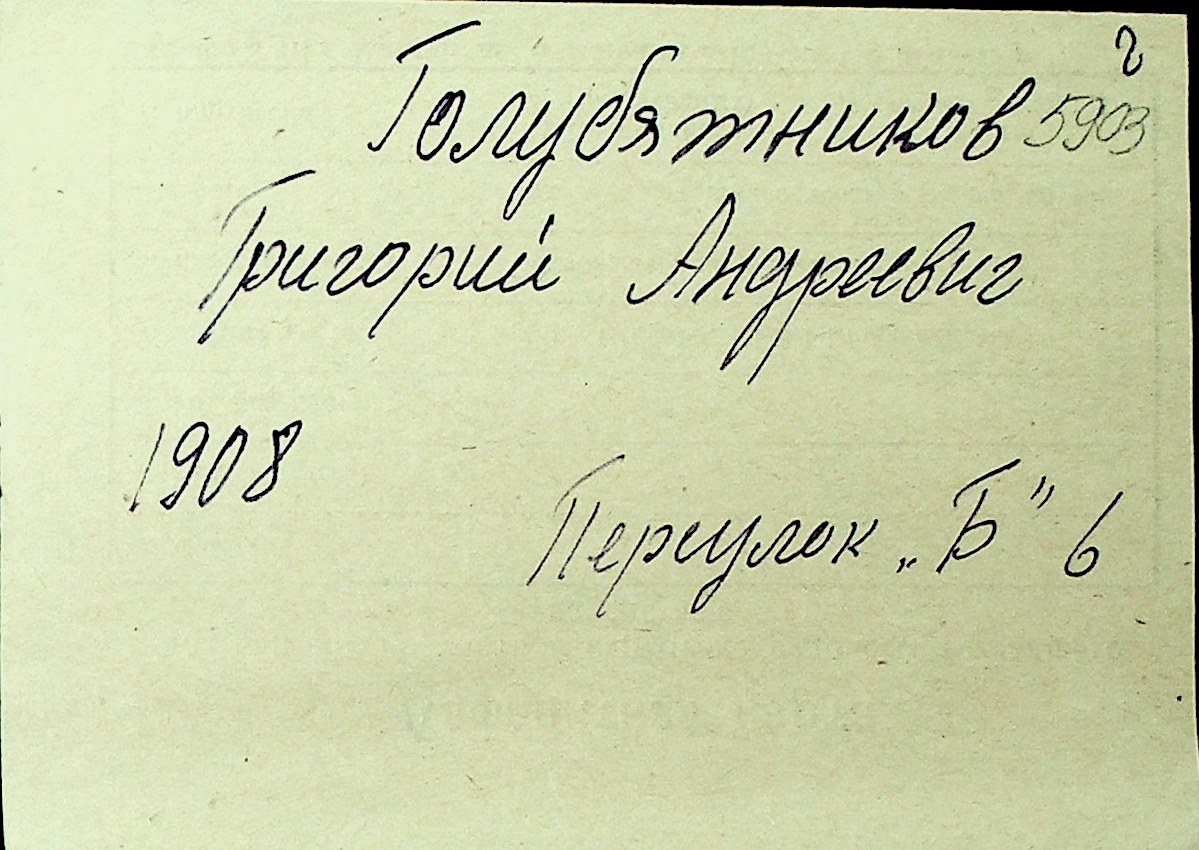 г
Голубятников 5903
Григорий Андреевич
1908
Переулок „Б" 6